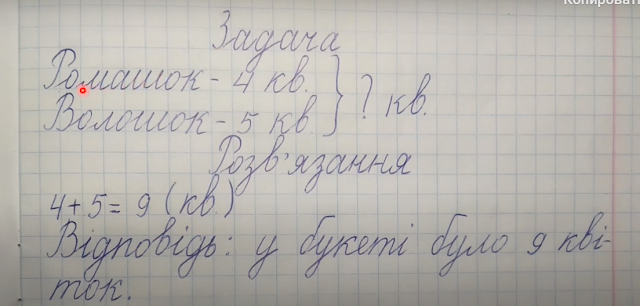 Копировать
Задача
Ромашок - 4 кв. } ? кв.
Волошок - 5 кв.
Розв'язання
4 + 5 = 9 (кв.)
Відповідь: у букеті було 9 кві-
ток.